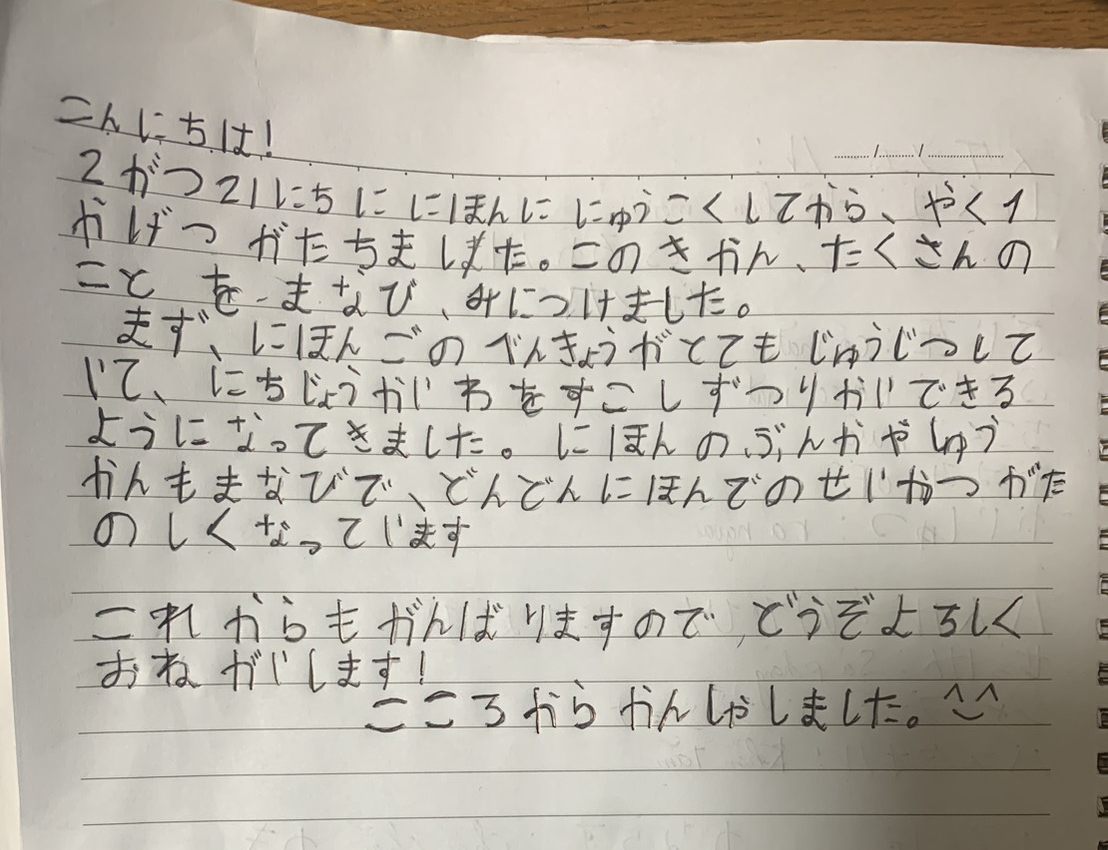 こんにちは!
2がつ21にちに にほんに にゅうこくしてから、やく1
かげつ がたちました。このきかん、たくさんの
こと を、まなび、みにつけました。
まず、にほんごのべんきょうがとてもじゅうじつして
いて、にちじょうかいわをすこしずつりかいできる
ようになってきました。にほんのぶんかやしゅう
かんもまなびで、どんどんにほんでのせいかつがた
のしくなっています
これからもがんばりますので、どうぞよろしく
おねがいします!
こころからかんしゃしました。^^